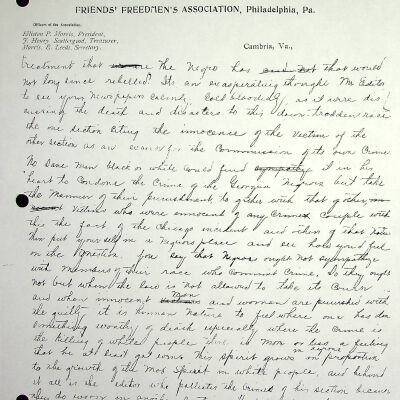 FRIENDS' FREEDMEN'S ASSOCIATION, Philadelphia, Pa.
Officers of the Association.
Elliston P. Morris, President,
J. Henry Scattergood, Treasurer,
Morris E. Leeds, Secretary.
Cambria, Va.,
treatment that the Negro has that would
not long since rebelled. Its an exasperating thought Mr Editor
to see your Newspapers calmly, Cold bloodedly, as it were dis-
cussing the death and disasters to this down-trodden race
the one section citing the innocence of the victim of the
other section as an excuse for the Commission of its own Crime
No sane man black or white could find it in his
heart to Condone the Crime of the Georgia Negroes but take
the manner of their punishment to gether with that of other
victims who were innocent of any Crime couple with
this the fact of the Chicago incident and others of that nature
then put your self in a Negroes place and see how you'd feel
on the question. You say that Negroes ought not sympathize
with members of their race who commit Crime. So they ought
not but when the law is not allowed to take its Course
and when innocent men and women are punished with
the guilty it is human nature to feel where one has done
something worthy of death especially where the Crime is
the killing of white people there is more or less a feeling
that he at least got some This spirit grows in negroes in proportion
to the growth of the Mob Spirit in white people, and behind
it all is the editor who palliates the Crimes of his section because
they do worse in another